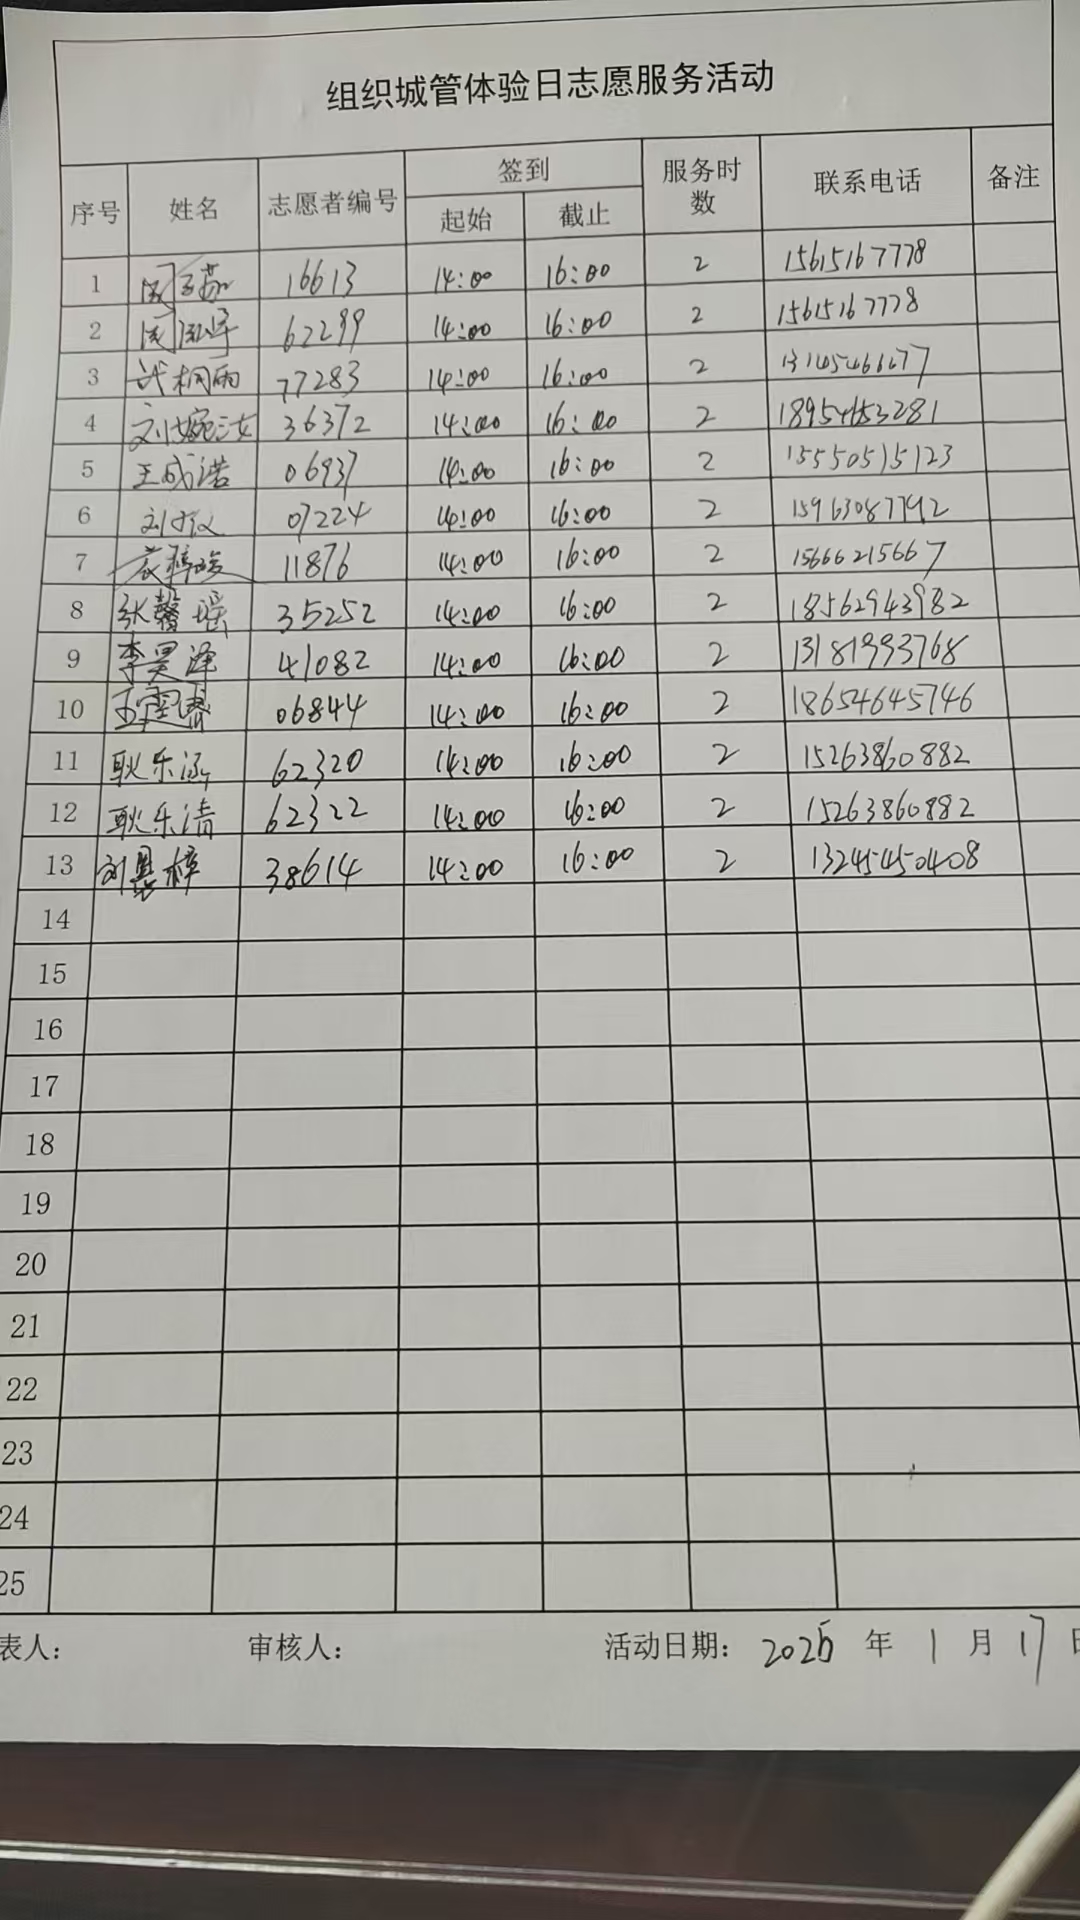 组织城管体验日志愿服务活动
序号 姓名 志愿者编号 签到 服务时数 联系电话 备注
起始 截止
1 16613 14:00 16:00 2 15615167778
2 62299 14:00 16:00 2 15615167778
3 武桐雨 77283 14:00 16:00 2
4 刘婉汝 36372 14:00 16:00 2
5 王成诺 06937 14:00 16:00 2 15550515123
6 07224 14:00 16:00 2 15963087792
7 11876 14:00 16:00 2 15666215667
8 张馨瑶 35252 14:00 16:00 2 18562943982
9 李昊泽 41082 14:00 16:00 2 13181993768
10 06844 14:00 16:00 2 18654645746
11 耿乐涵 62320 14:00 16:00 2 15263860882
12 耿乐清 62322 14:00 16:00 2 15263860882
13 38614 14:00 16:00 2 13245450408
14
15
16
17
18
19
20
21
22
23
24
25
表人： 审核人： 活动日期： 年 1 月 17 日